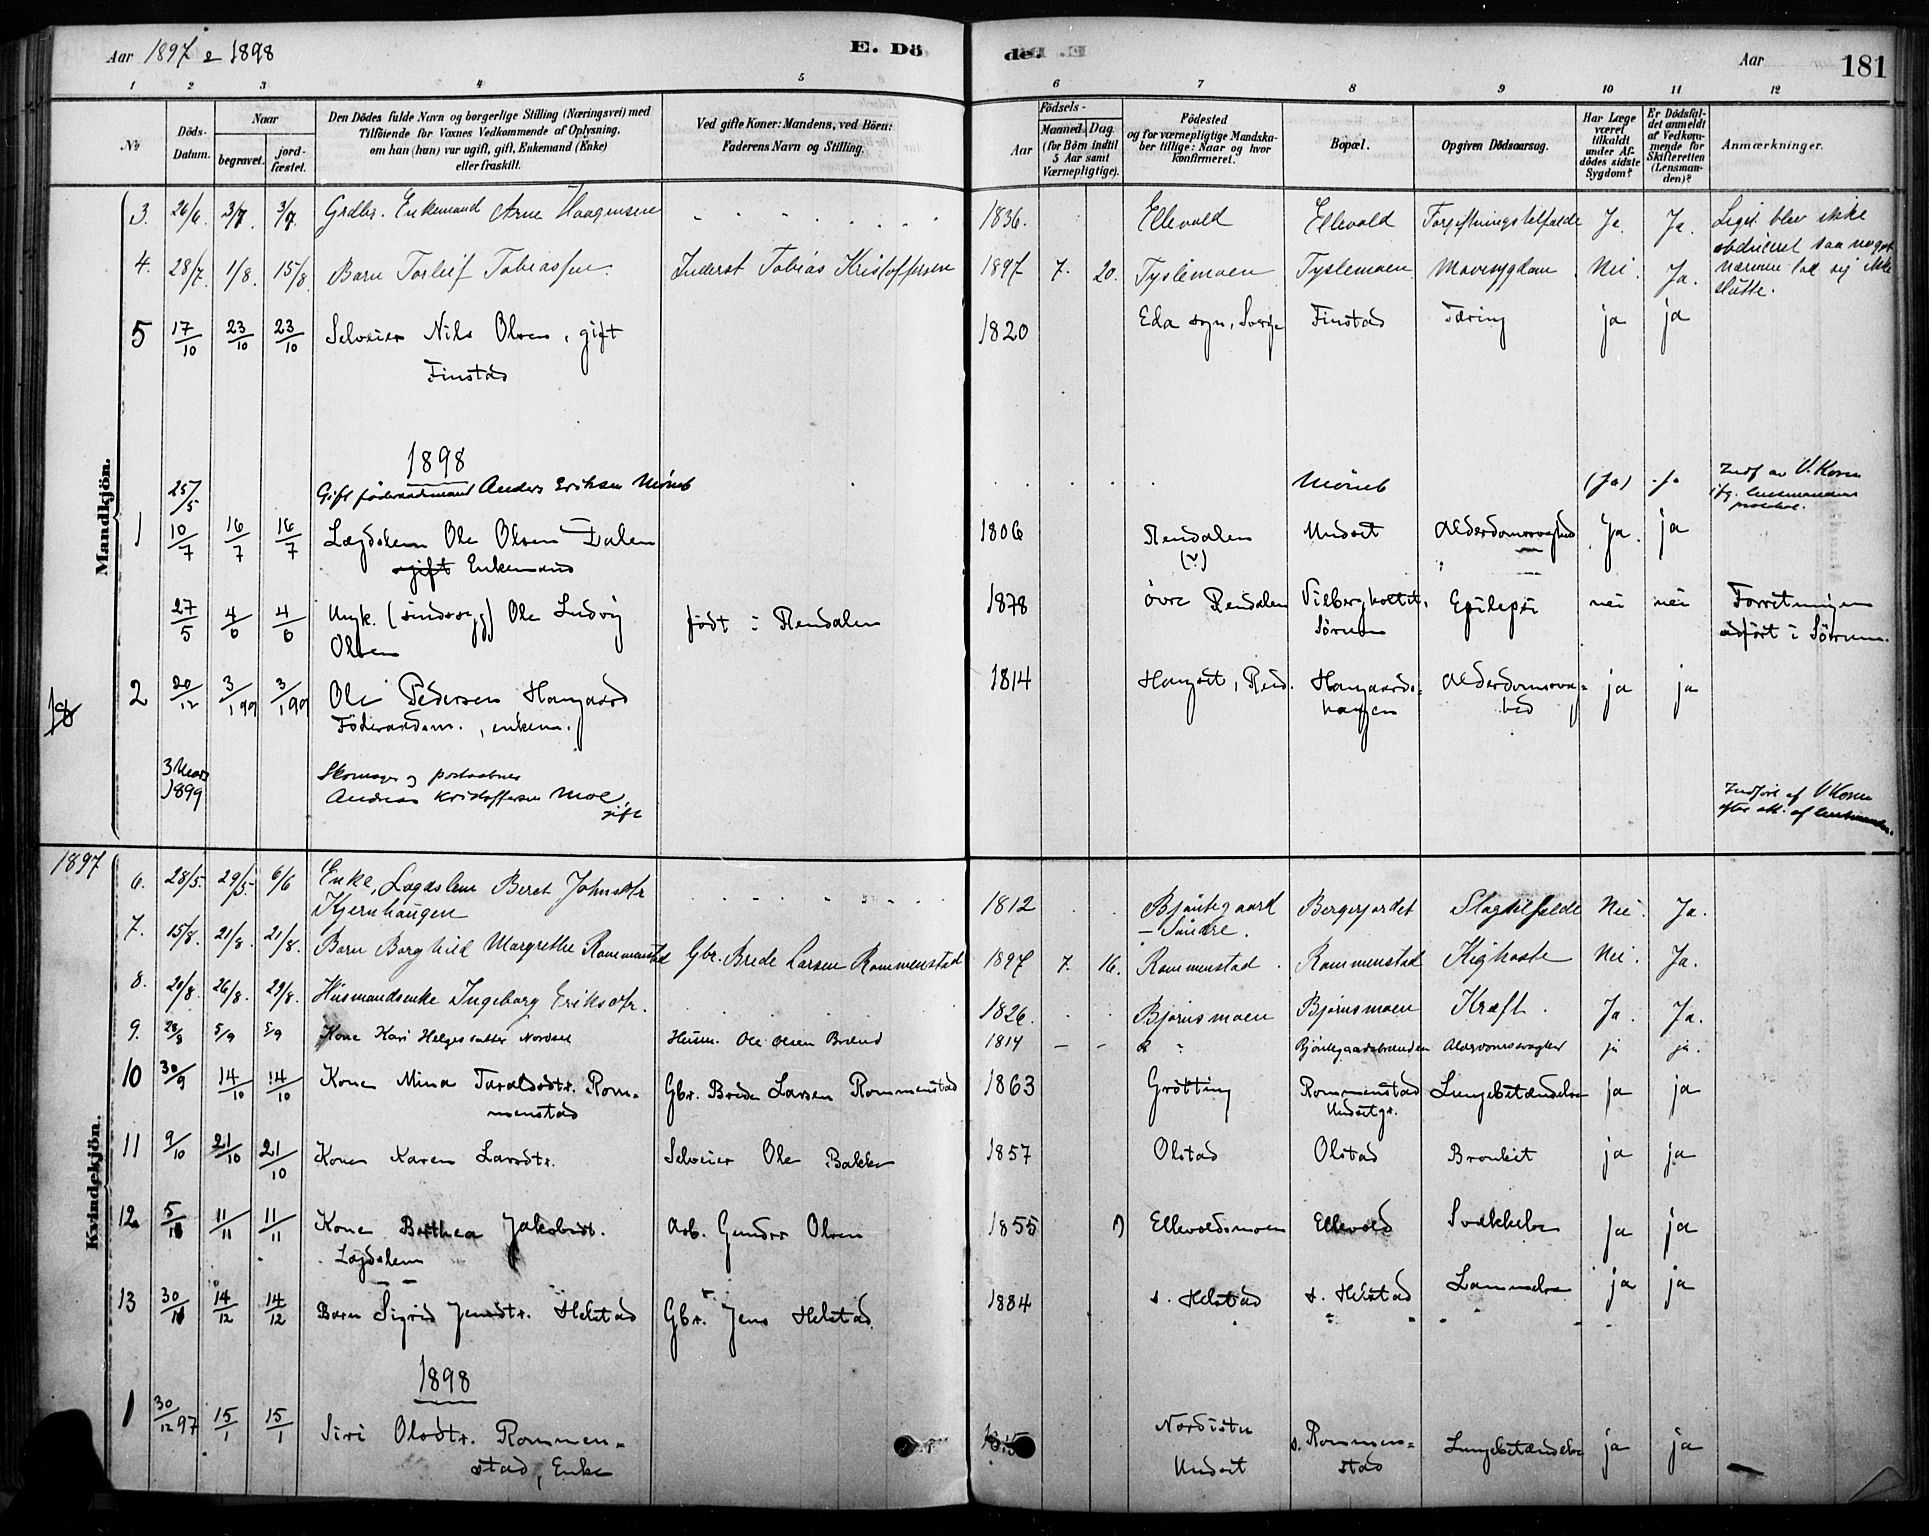 Aar 1897 & 1898
E. Dö
de.
Aar
181
1 2 3 4 5 6 7 8 9 10 11 12
No
Döds-Datum.
Naar
begravet.
jord-fæstet.
Den Dödes fulde Navn og borgerlige Stilling (Næringsvei) med
Tilföiende for Voxnes Vedkommende af Oplysning,
om han (hun) var ugift, gift, Enkemand (Enke)
eller fraskilt.
Ved gifte Koner: Mandens, ved Börn:
Faderens Navn og Stilling.
Födsels-
Aar
Maaned. Dag
(for Börn indtil
5 Aar samt
Værnepligtige).
Födested
og for værnepligtige Mandska-
ber tillige: Naar og hvor
konfirmeret.
Bopæl.
Opgiven Dödsaarsag.
Har Læge
været
tilkaldt
under Af-
dödes sidste
Sygdom?
Er Dödsfal-
det anmeldt
af Vedkom-
mende for
Skifteretten
(Lensman-
den)?
Anmærkninger.
Mandkjön.
3. 26/6. 3/7. 3/7. Grdbr. Enkemand Arne Haagensen 1836. Ellevold Ellevold Forgiftningstilfælde Ja. Ja. Liget blev ikke
obduceret saa noget
nærmere lod sig ikke
slutte.
4. 28/7. 1/8. 15/8. Barn Torleif Tobiassen. Inderst Tobias Kristoffersen 1897 7. 20. Tyslemoen Tyslemoen Mavesygdom Nei. Ja.
5 17/10 23/10 23/10 Selveier Nils Olsen, gift 1820 Eda sogn, Sverige Finstad Tæring ja ja
Finstad
1898
25/5 Gift föderaadmand Anders Eriksen Mömb Mömb (Ja) Ja Indf av V. Koren
ifg. lensmandens
protokol.
1 10/7 16/7 16/7 Lægdslem Ole Olsen Dalen 1806 Rendalen Undset Alderdomssvaghed Ja. ja
ugift Enkemand (?)
27/5 4/6 4/6 Ungk. (sindssyg) Ole Ludvig født i Rendalen 1878 övre Rendalen Vilberg hospit. Epilepsi nei nei Forretningen
Olsen Sörum udfört i Sörum.
18
2 20/12 3/1 99 3/1 99 Ole Pedersen Hangaard 1814 Hangset, Rend. Hangaards- Alderdomssvag- ja ja
Föderaadsm., enkem. haugen hed
3 Mars
1899
Skomager og postaabner
Andreas Kristoffersen Moe
gift
Indfört af V Koren
efter att. af lensmanden.
1897
Kvindekjön.
6. 28/5. 29/5. 6/6 Enke, Lægdslem Beret Johnsdtr 1812 Bjöntegaard Bergerjordet Slagtilfælde Nei. Ja.
Kjernhaugen – Söndre.
7. 15/8. 21/8. 21/8. Barn Borghild Margrethe Rommenstad Gbr. Brede Larsen Rommenstad 1897 7. 16. Rommenstad Rommenstad Kighoste Nei. Ja.
8. 20/8. 26/8. 29/8. Husmandsenke Ingeborg Eriksdtr. 1826. Bjørnsmoen Bjørnsmoen Kræft. Ja. Ja.
9. 28/8 5/9 5/9 Kone Kari Helgesdatter Nordset Husm. Ole Olsen Brænd 1814 – – Bjöntegaardsbrænden Alderdomssvaghet ja ja.
10 30/9 14/10 14/10 Kone Mina Taraldsdtr. Rom- Gbr. Brede Larsen Rommenstad 1863 Grötting Rommenstad Lungebetændelse ja ja
menstad Undsetgr.
11 9/10 21/10 21/10 Kone Karen Larsdtr. Selveier Ole Bakken 1857 Olstad Olstad Bronkit ja ja
12 5/11 11/11 11/11 Kone Berthea Jakobsdt. Arb. Gunder Olsen 1855 Ellevoldsmoen Ellevold Svækkelse ja ja
Lægdslem
13 30/11 14/12 14/12 Barn Sigrid Jensdtr. Helstad Gbr. Jens Helstad 1884 s. Helstad s. Helstad Lammelse ja ja
1898
1 30/12 97 15/1 15/1 Siri Olsdtr. Rommen- 1815 Nordistu s. Rommen- Lungebetændelse ja ja
stad, Enke Undset stad